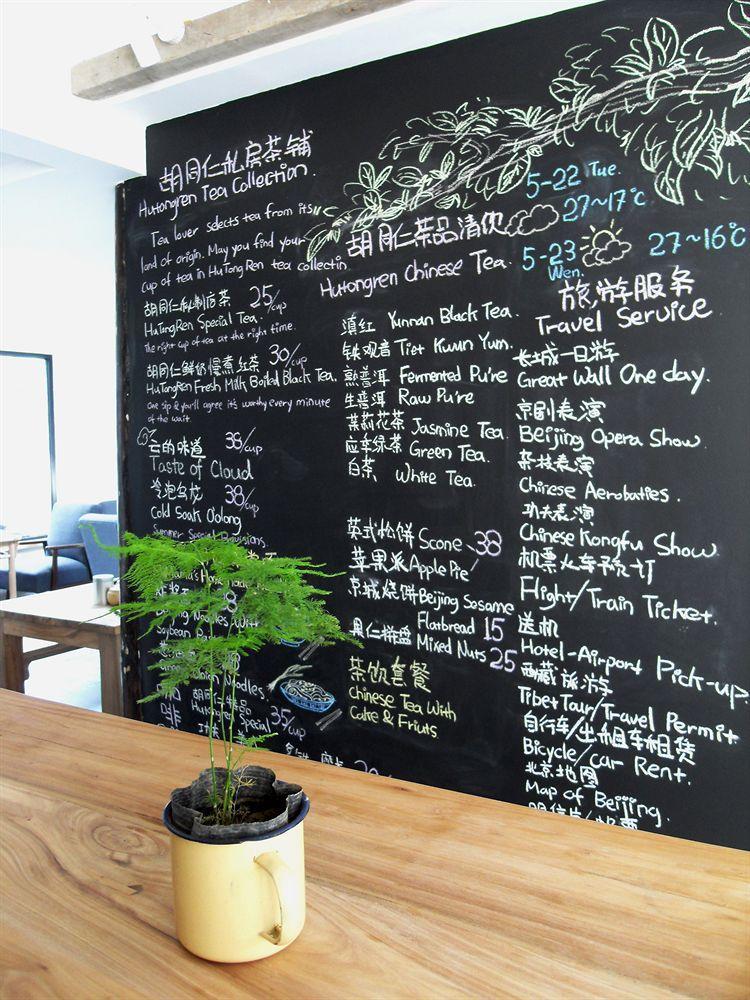 胡同仁私房茶铺
Hutongren Tea Collection.
Tea lover selects tea from its
land of origin. May you find your
cup of tea in HuTongRen tea collectin
胡同仁私制店茶 25/cup
HuTongRen Special Tea.
The right cup of tea at the right time.
胡同仁鲜奶慢煮红茶 30/cup
HuTongRen Fresh Milk Boiled Black Tea.
One sip & you'll agree it's worthy every minute
of the wait.
云的味道 38/cup
Taste of Cloud
冷泡乌龙 38/cup
Cold Soak Oolong
Summer Special
8
Noodles With
Soybean
Onion Noodles
胡同仁
Hutongren Special
35/cup
啡
胡同仁茶品清饮
Hutongren Chinese Tea.
滇红 Yunnan Black Tea.
铁观音 Tiet Kwun Yum.
熟普洱 Fermented Pu're
生普洱 Raw Pu're
茉莉花茶 Jasmine Tea.
应季绿茶 Green Tea.
白茶 White Tea.
英式松饼 Scone 38
苹果派 Apple Pie
京城烧饼 Beijing Sosame
Flatbread 15
果仁拼盘 Mixed Nuts 25
茶饮套餐
Chinese Tea With
Cake & Friuts
5-22 Tue.
27~17℃
5-23 27~16℃
Wen.
旅游服务
Travel Service
长城一日游
Great Wall One day.
京剧表演
Beijing Opera Show.
杂技表演
Chinese Aerobaties.
功夫表演
Chinese Kongfu Show
机票火车预订
Flight/Train Ticket.
送机
Hotel-Airport Pick-up
西藏旅游
Tibet Tour/Travel Permit
自行车/出租车租赁
Bicycle/car Rent.
北京地图
Map of Beijing.
明信片/邮票